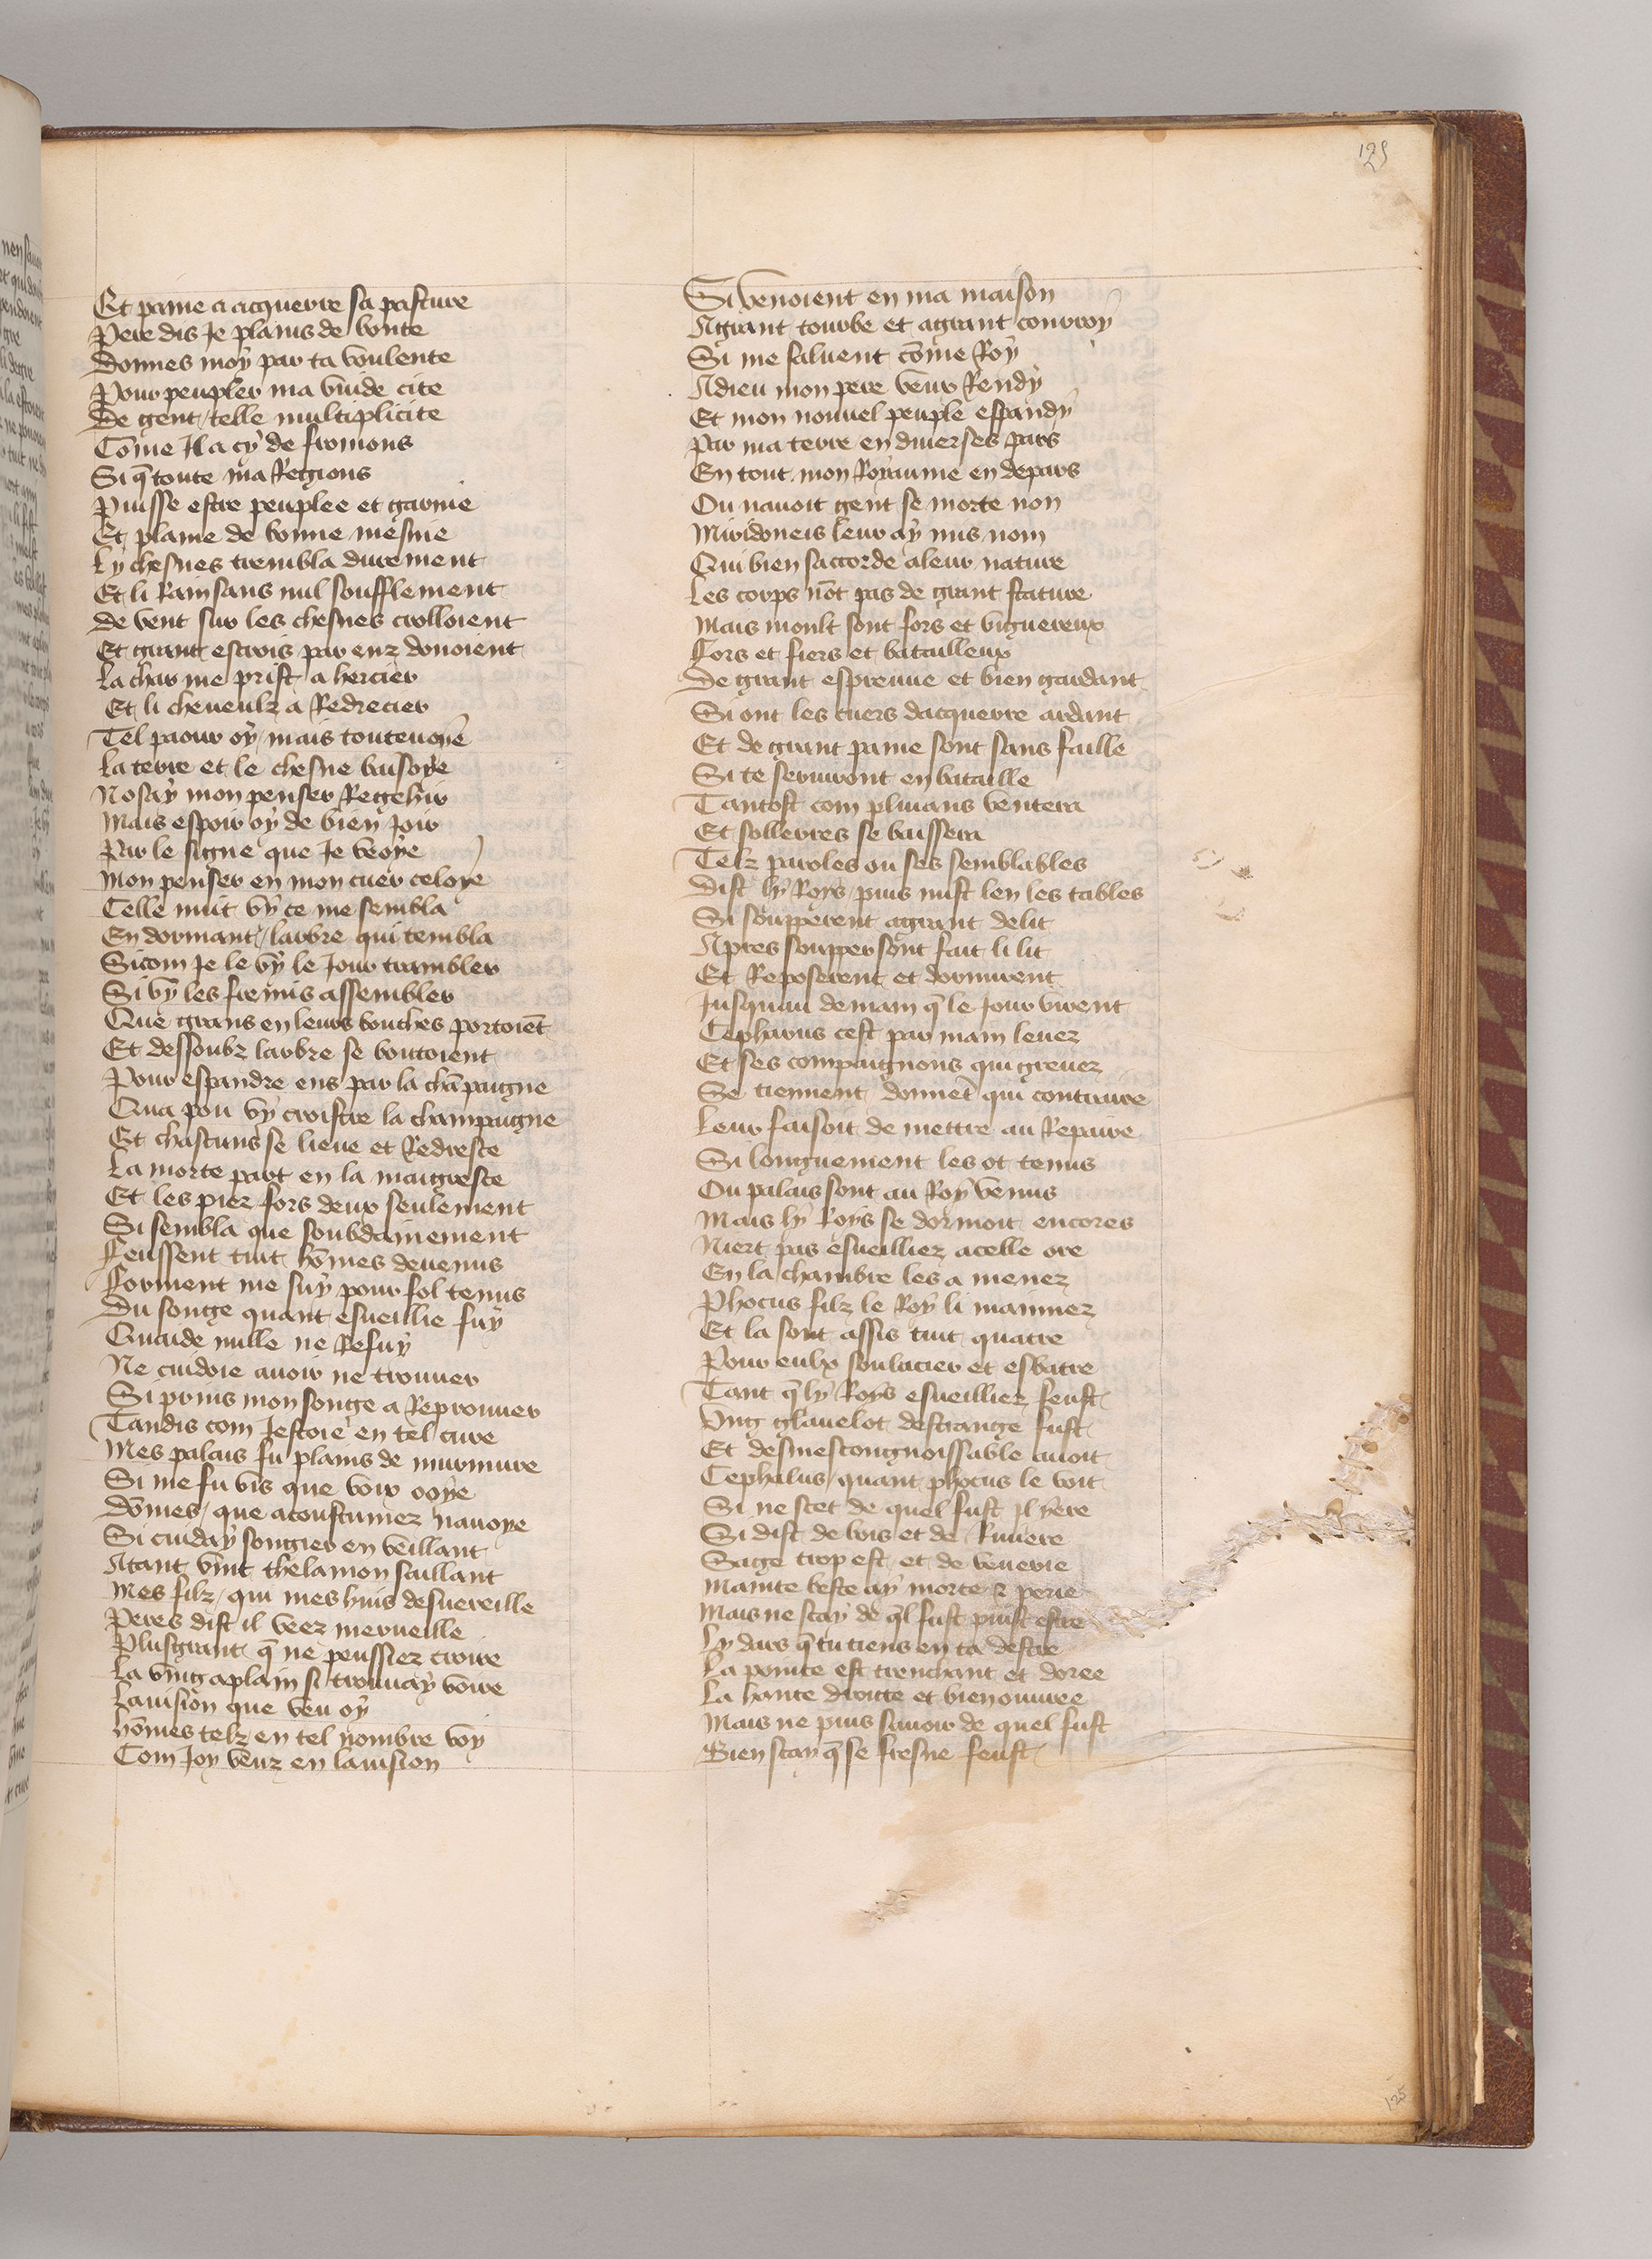 125
Et paine a acquerre sa pasture
Pere dis Je plains de bonte
Donnes moy par ta voulente
Pour peupler ma vuide cite
De gent / telle multiplicite
Cõme Il a cy de fromions
Si q̃ toute ma Regions
Puisse estre peuplee et garnie
Et plaine de bonne mesnie
Ly chesnes trembla durement
Et li Raim sans nul soufflement
De vent sur les chesnes crolloient
Et grant escrois par eulz donoient
La char me prist a hercier
Et li cheueulz a Redrecier
Tel paour oy / mais touteuoye
La terre et le chesne baisoye
Nosay mon penser Regehir
Mais espoir oy de bien Joir
Par le signe que Je veoye
Mon penser en mon cuer celoye
Celle nuit vy ce me sembla
En dormant / larbre qui trembla
Sicom Je le vy le Jour trambler
Si vy les fremis assembler
Que grans en leurs bouches portoiẽt
Et dessoubz larbre se boutoient
Pour espandre ens par la chãpaigne
Qua pou vy croistre la champaigne
Et chascuns se lieue et Redresce
La morte part en la maigresce
Et les piez fors deux seulement
Si sembla que soubdainement
Feussent tuit hõmes deuenus
Forment me suy pour fol tenus
Du songe quant esueillie fuy
Quaide nulle ne Refuy
Ne cuidoie auoir ne trouuer
Si prins mon songe a Reprouuer
Tandis com Jestoie en tel cure
Mes palais fu plains de murmure
Si me fu vis que voix ooye
Dõmes / que acoustumez nauoye
Si cuiday songier en veillant
Atant vint thelamon saillant
Mes filz / qui mes huis desuereille
Peres dist il veez merueille
Plus grant q̃ ne peussiez croire
La ving aplain si trouuay voire
Lauision que veu oy
Hõmes telz en tel nombre voy
Com Joy veuz en lauision
Si venoient en ma maison
Agrant tourbe et agrant conrroy
Si me saluent cõme Roy
Adieu mon pere veur Rendy
Et mon nouuel peuple espandy
Par ma terre en diuerses pars
En tout mon Royaume en depars
Ou nauoit gent se morte non
Miridoneis leur ay mis nom
Qui bien saccorde aleur nature
Les corps nõt pas de grant stature
Mais moult sont fors et viguereux
Fors et fiers et batailleux
De grant espreuue et bien gardant
Si ont les cuers dacquerre ardant
Et de grant paine sont sans faille
Si te seruiront en bataille
Tantost com pluians ventera
Et solleures se baissera
Telz paroles ou ses semblables
Dist ly Roys / puis mist len les tables
Si soupperent agrant delit
Apres soupper sont fait li lit
Et Reposerent et dormirent
Jusquau demain q̃ le Jour virent
Cephalus cest par main leuez
Et ses compaignons qui greuez
Se tiennent / donnet qui contraire
Leur faisoit de mettre au Repaire
Si longuement les ot tenus
Ou palais sont au Roy venus
Mais ly Roys se dormoit encores
Niert pas esueilliez acelle ore
En la chambre les a menez
Phocus filz le Roy li mainnez
Et la sont assis tuit quatre
Pour eulx soulacier et esbatre
Tant q̃ ly Roys esueilliez feust
Vng glauelot destrange fust
Et desmescongnoissable auoit
Cephalus / quant phocus le voit
Si ne scet de quel fust Il yere
Si dist de bois et de Riuiere
Sage trop est et de venerie
Mainte beste ay morte & perie
Mais ne scay de q̃l fust puist estre
Ly dars q̃ tu tiens en ta destre
La pointe est trenchant et doree
La hante droitte et bien ouuree
Mais ne puis sauoir de quel fust
Bien scay q̃ se fresne feust
125